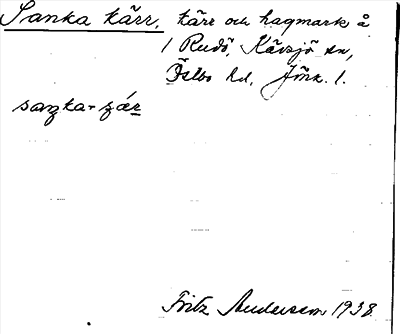 Sanka kärr, kärr och hagmark å
1 Rudö, Kävsjö sn,
Östbo hd, Jönk. l.
saŋka-çär
Fritz Anderson 1938